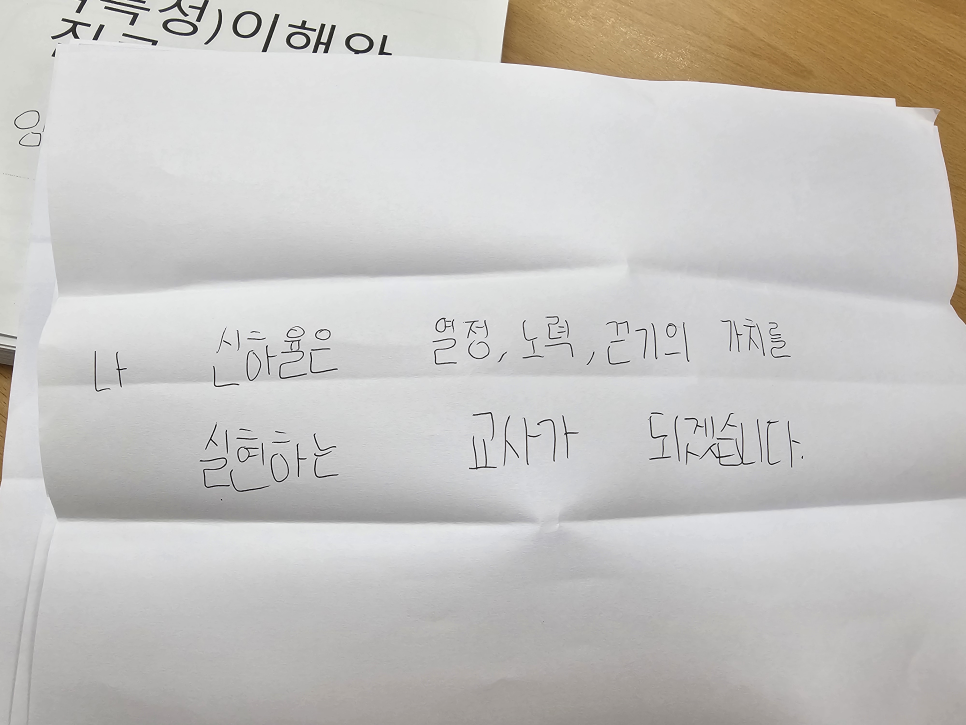 성)이해와
나 신하율은 열정, 노력, 끈기의 가치를
실현하는 교사가 되겠습니다.